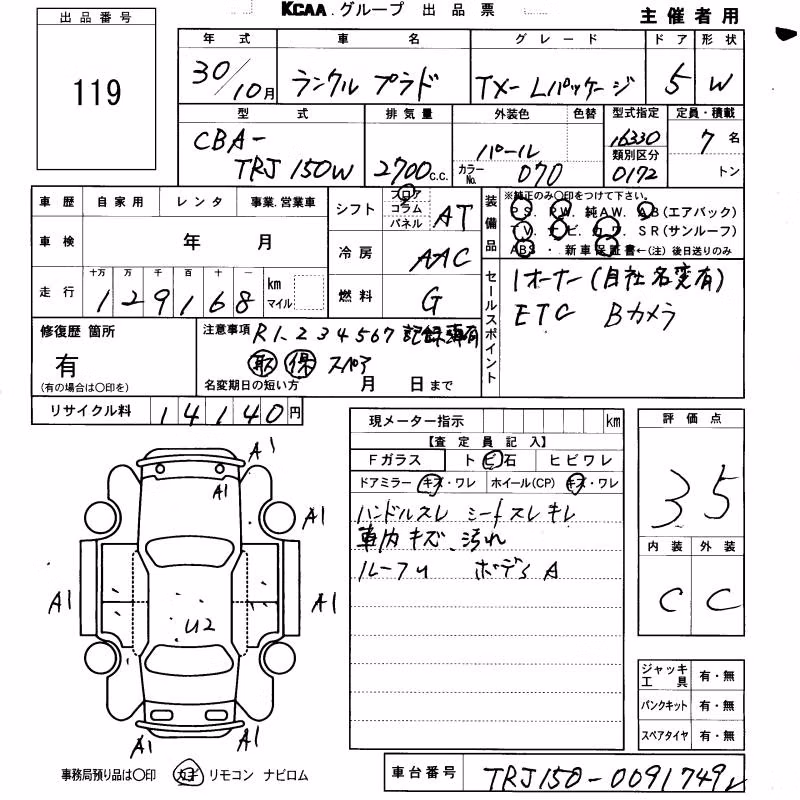 KCAA.グループ 出品票
主催者用
出品番号
119
年式 車名 グレード ドア 形状
30/10月 ランクル プラド TX-Lパッケージ 5 W
型式 排気量 外装色 色替 型式指定 定員・積載
CBA-TRJ150W 2700c.c. パール カラーNo. 070 16330 類別区分 0172 7名 トン
車歴 自家用 レンタ 事業.営業車
車検 年 月
走行 十万 万 千 百 十 一 129168 km マイル
シフト フロア コラム パネル AT
冷房 AAC
燃料 G
装備品
※純正のみ○印をつけて下さい。
PS. PW. 純AW. AB(エアバッグ)
TV. ナビ. カワ. SR(サンルーフ)
ABS・新車保証書←(注)後日送りのみ
セールスポイント
1オーナー(自社名変有)
ETC Bカメラ
修復歴 箇所
有
(有の場合は○印を)
注意事項 R1.234567記録簿有
取 保 スペア
名変期日の短い方 月 日まで
リサイクル料 14140円
現メーター指示 km
【査定員記入】
Fガラス トビ石 ヒビワレ
ドアミラー キズ・ワレ ホイール(CP) キズ・ワレ
ハンドルスレ シートスレキレ
車内キズ、汚れ
ルーフU ボディA
評価点
3.5
内装 外装
C C
ジャッキ工具 有・無
パンクキット 有・無
スペアタイヤ 有・無
A1
A1
A1
A1
A1
U2
A1
A1
事務局預り品は○印 カギ リモコン ナビロム
車台番号 TRJ150-0091749